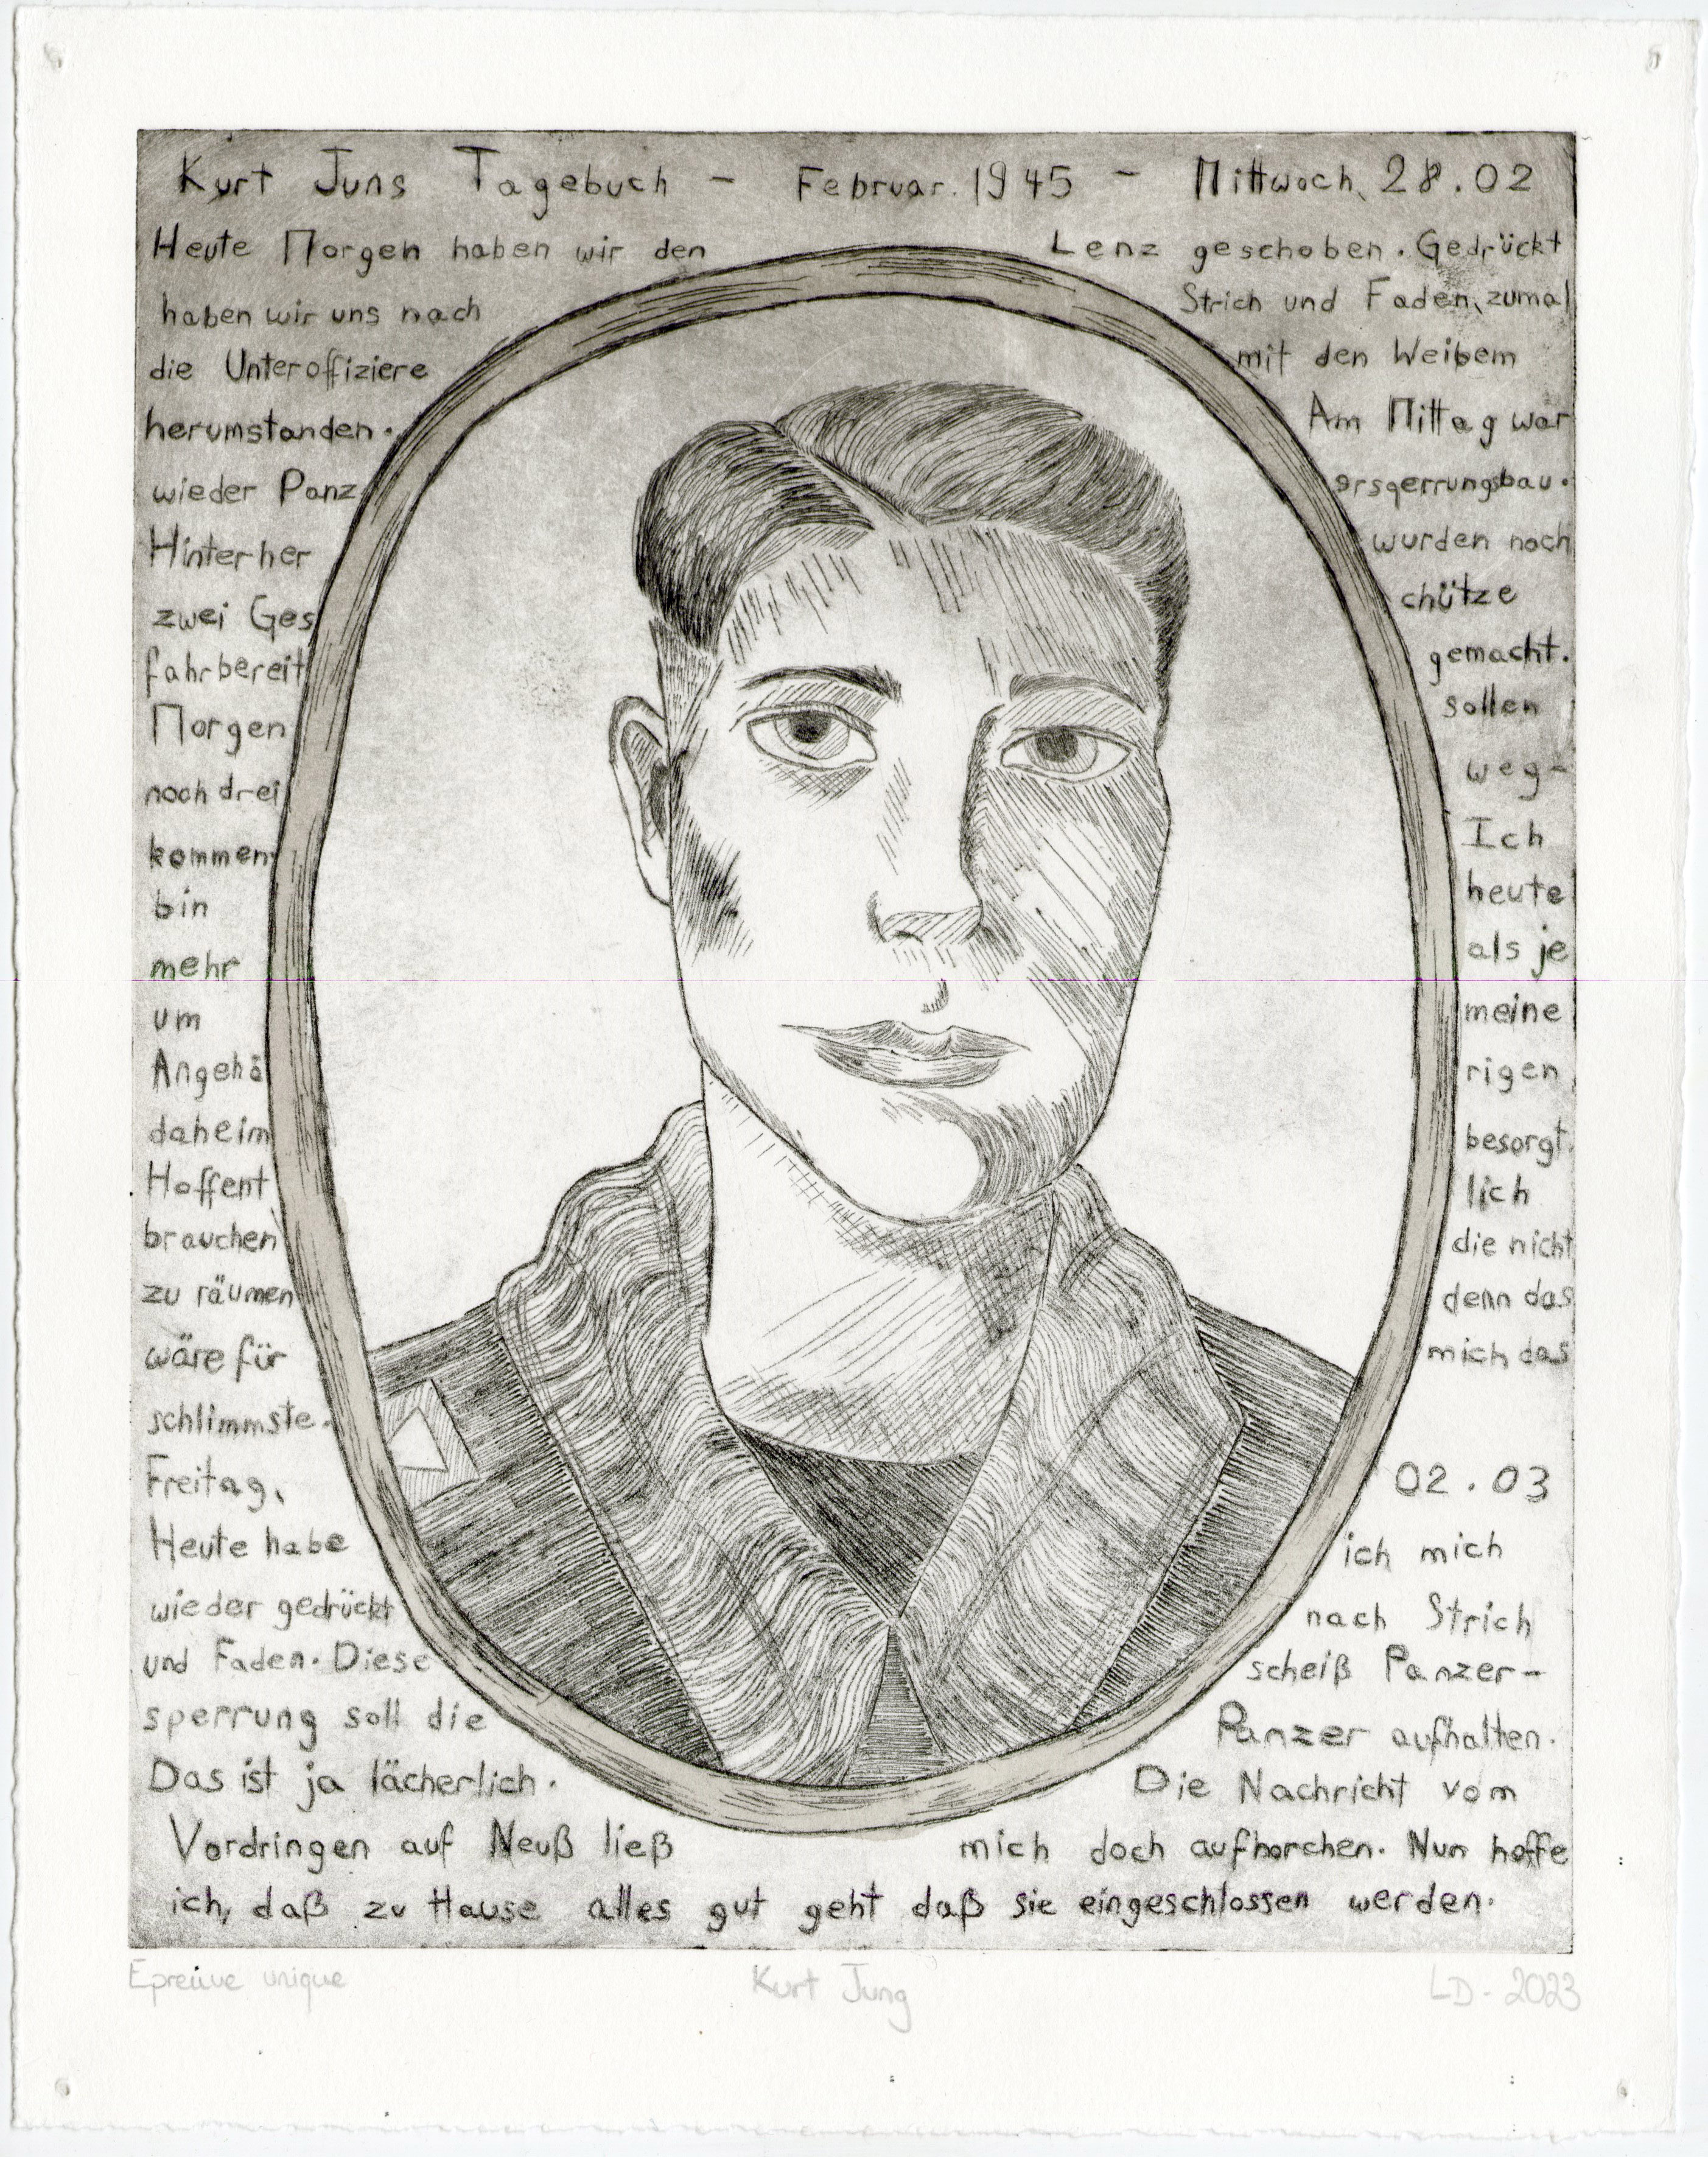 Kurt Juns Tagebuch - Februar. 1945 - Mittwoch, 28.02
Heute Morgen haben wir den Lenz geschoben. Gedrückt
haben wir uns nach Strich und Faden, zumal
die Unteroffiziere mit den Weibem
herumstanden. Am Mittag war
wieder Panz ersqerrungsbau.
Hinterher wurden noch
zwei Ges chütze
fahrbereit gemacht.
Morgen sollen
noch drei weg-
kommen Ich
bin heute
mehr als je
um meine
Angehö rigen
daheim besorgt.
Hoffent lich
brauchen die nicht
zu räumen denn das
wäre für mich das
schlimmste.
Freitag, 02.03
Heute habe ich mich
wieder gedrückt nach Strich
und Faden. Diese scheiß Panzer-
sperrung soll die Panzer aufhalten.
Das ist ja lächerlich. Die Nachricht vom
Vordringen auf Neuß ließ mich doch aufhorchen. Nun hoffe
ich, daß zu Hause alles gut geht daß sie eingeschlossen werden.
Epreuve unique Kurt Jung LD - 2023